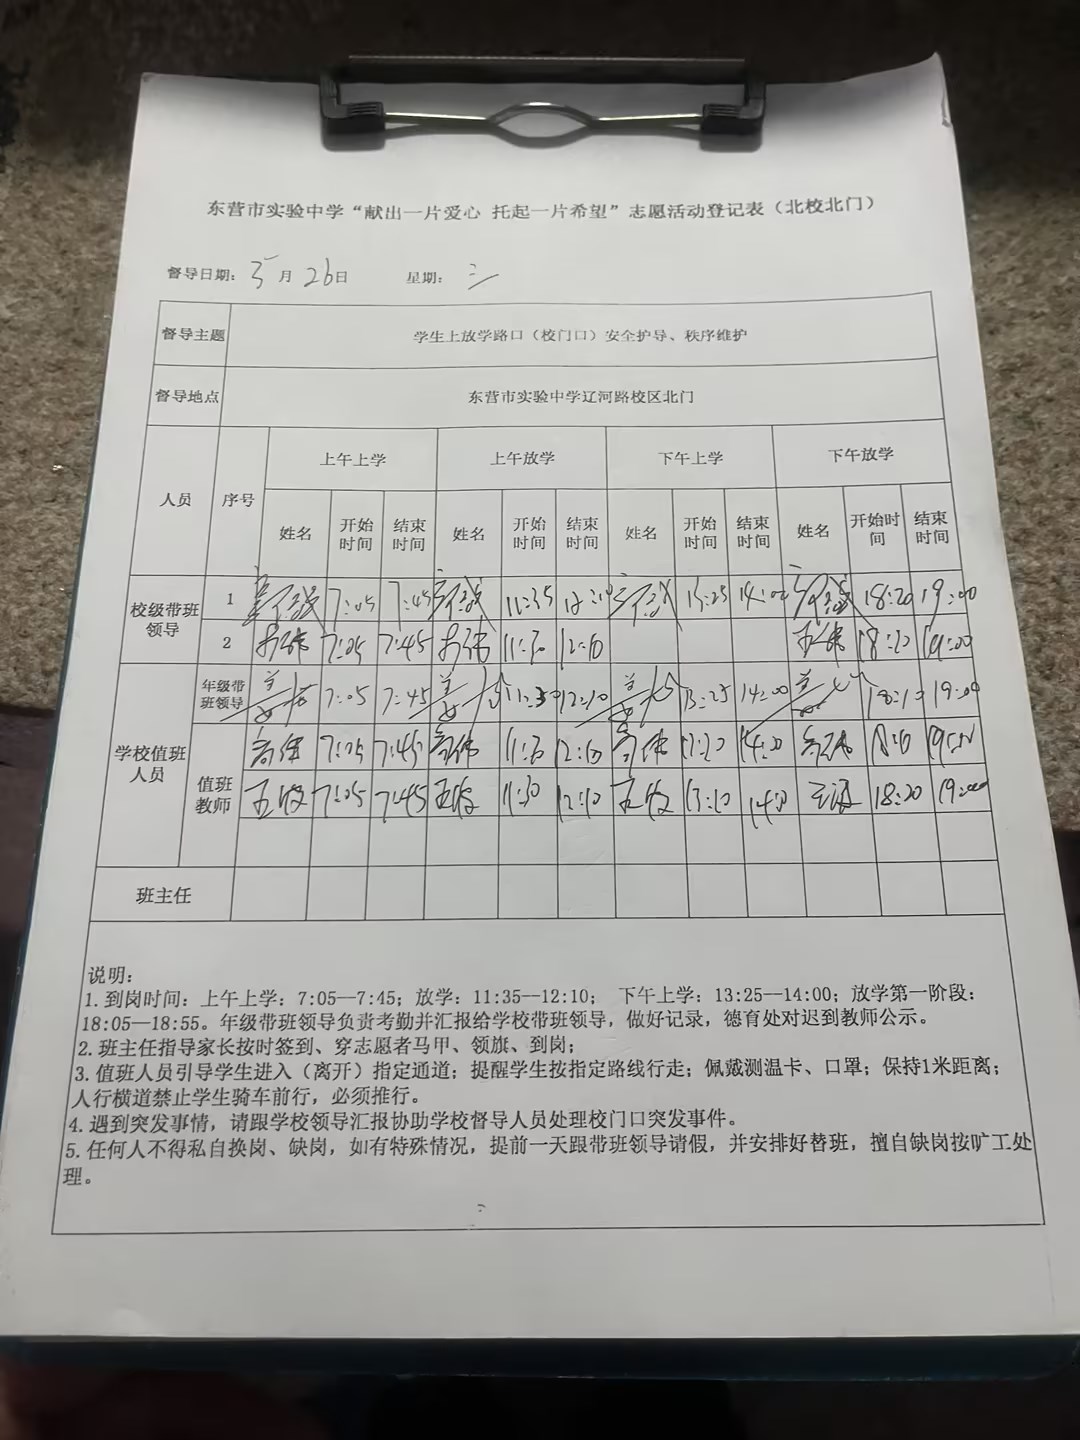 东营市实验中学“献出一片爱心 托起一片希望”志愿活动登记表（北校北门）
督导日期: 5月26日 星期: 三
督导主题 学生上放学路口（校门口）安全护导、秩序维护
督导地点 东营市实验中学辽河路校区北门
人员 序号 上午上学 上午放学 下午上学 下午放学
姓名 开始时间 结束时间 姓名 开始时间 结束时间 姓名 开始时间 结束时间 姓名 开始时间 结束时间
校级带班领导 1 7:05 7:45 11:35 12:10 13:25 14:00 18:20 19:00
2 7:05 7:45 11:30 12:10 18:20 19:00
学校值班人员 年级带班领导 7:05 7:45 11:30 12:10 13:25 14:00 18:10 19:00
值班教师 7:05 7:45 11:30 12:10 14:00 18:10
7:05 7:45 11:30 12:10 13:10 18:20 19:00
班主任
说明:
1. 到岗时间: 上午上学: 7:05—7:45; 放学: 11:35—12:10; 下午上学: 13:25—14:00; 放学第一阶段:
18:05—18:55。年级带班领导负责考勤并汇报给学校带班领导，做好记录，德育处对迟到教师公示。
2. 班主任指导家长按时签到、穿志愿者马甲、领旗、到岗;
3. 值班人员引导学生进入（离开）指定通道; 提醒学生按指定路线行走; 佩戴测温卡、口罩; 保持1米距离;
人行横道禁止学生骑车前行，必须推行。
4. 遇到突发事情，请跟学校领导汇报协助学校督导人员处理校门口突发事件。
5. 任何人不得私自换岗、缺岗，如有特殊情况，提前一天跟带班领导请假，并安排好替班，擅自缺岗按旷工处
理。